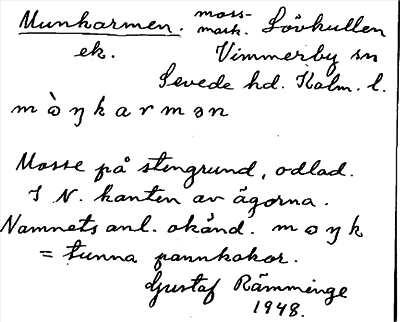 Munkarmen. moss-mark. Lövkullen
ek. Vimmerby sn
Sevede hd. Kalm. l.
m ò ŋ k a r m ə n
Mosse på stengrund, odlad.
I N. kanten av ägorna.
Namnets anl. okänd. m o ŋ k
= tunna pannkakor.
Gustaf Rämminge
1948.